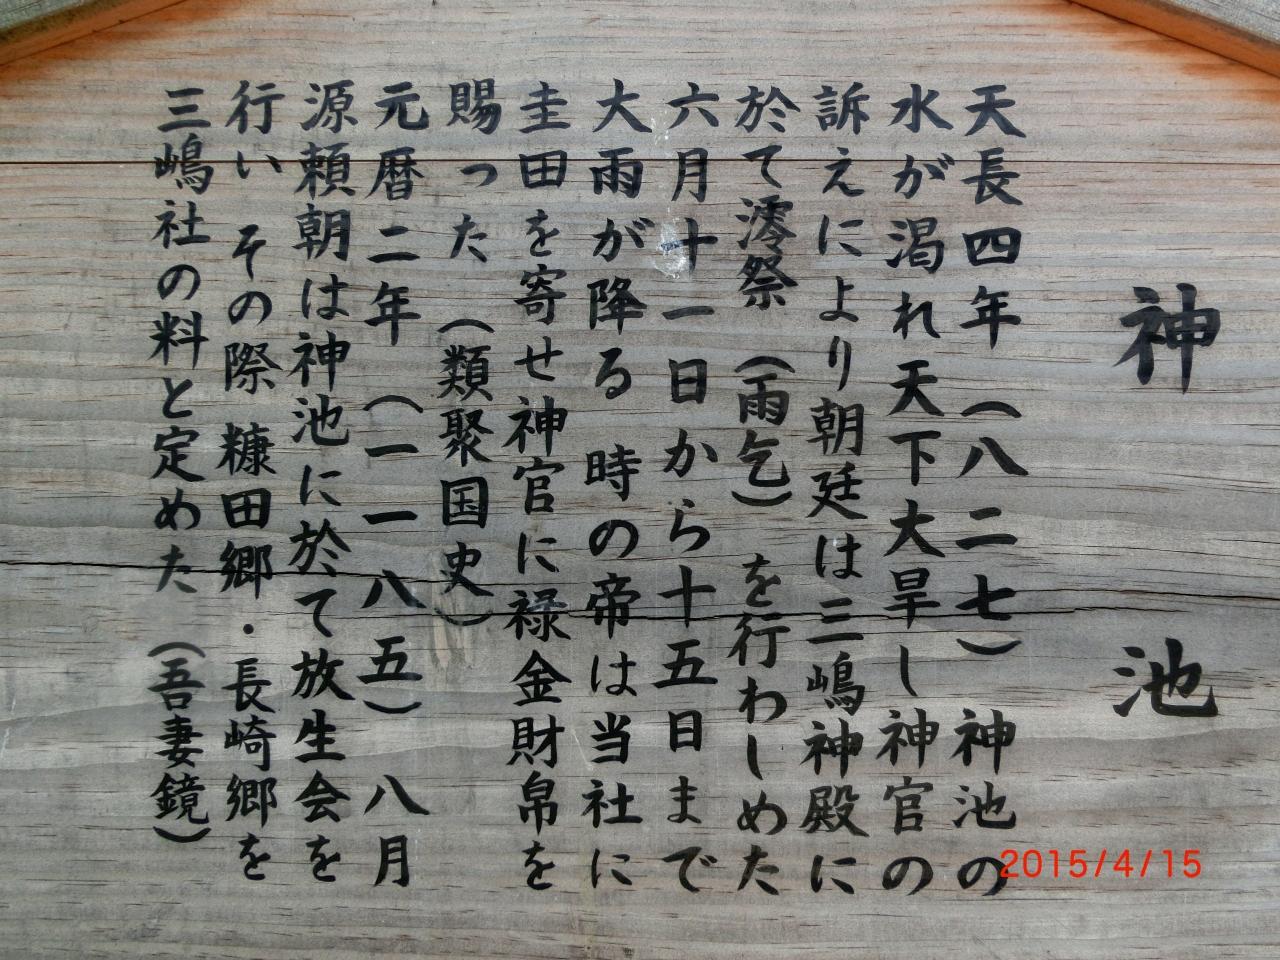 神池
天長四年(八二七) 神池の
水が渇れ天下大旱し 神官の
訴えにより朝廷は三嶋神殿に
於て澪祭(雨乞)を行わしめた
六月十一日から十五日まで
大雨が降る 時の帝は当社に
圭田を寄せ神官に禄金財帛を
賜った(類聚国史)
元暦二年(一一八五)八月
源頼朝は神池に於て放生会を
行い その際 糠田郷・長崎郷を
三嶋社の料と定めた(吾妻鏡)
2015/4/15